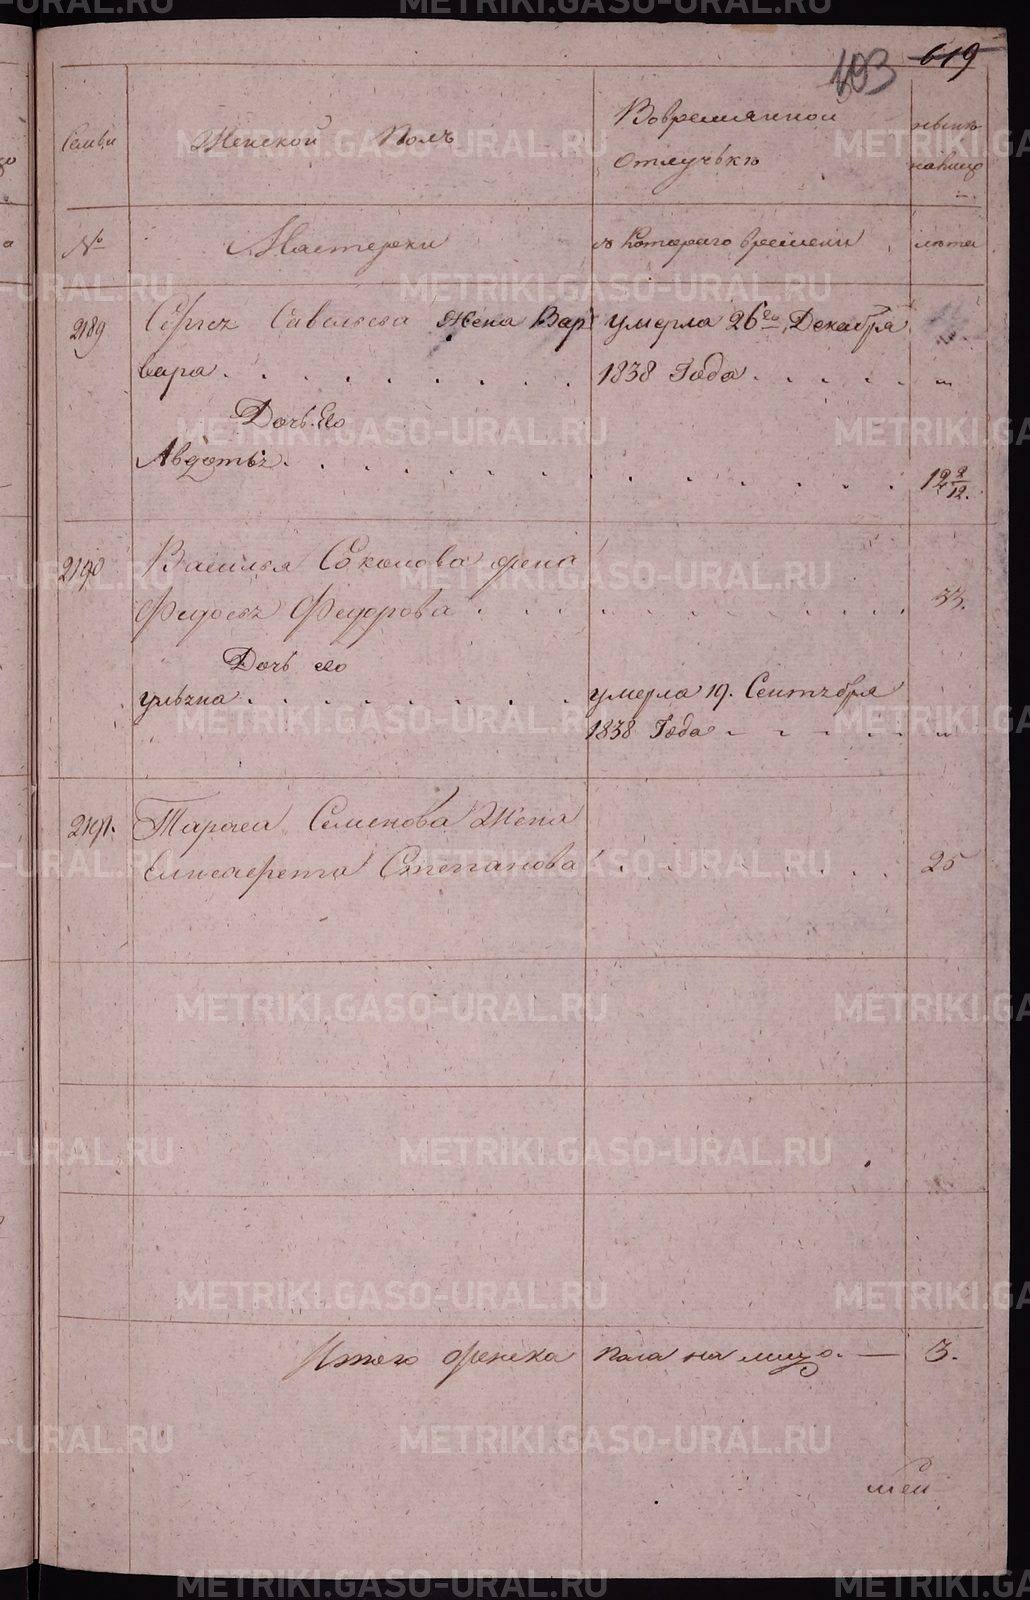 619
193
Семьи
Женской Полъ
Вовремянной
отлучькѣ
нынѣ
налицо
№
Мастерски
съ которого времени
лѣта
2189
Сергѣя Савельева жена Вар
умерла 26го Декабря
вара
1838 Года
"
Дочь Его
Авдотья
12 2/12.
2190
Василья Соколова жена
Федосья Федорова
33.
Дочь его
ульяна
умерла 19. Сентября
1838 Года
"
2191.
Тараса Семенова Жена
Елисаверета Степанова
25
Итого женска пола на лицо. — 3.
METRIKI.GASO-URAL.RU